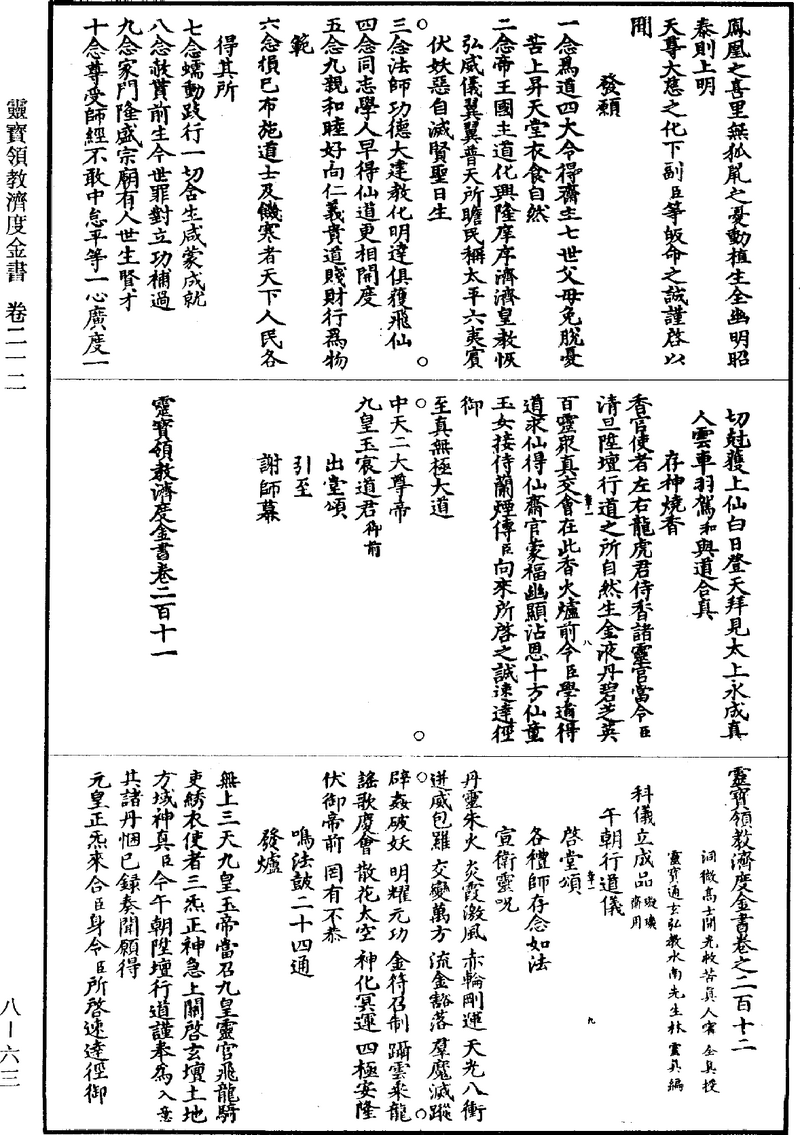 鳳凰之喜里無狐鼠之憂動植生全幽明昭
泰則上明
天尊大慈之化下副臣等皈命之誠謹啓以
聞
發願
一念爲道四大今得齋主七世父母免脫憂
苦上昇天堂衣食自然
二念帝王國主道化興隆庠序濟濟皇教恢
弘威儀翼翼普天所瞻民稱太平六夷賓
伏妖惡自滅賢聖日生
三念法師功德大建教化明達俱獲飛仙
四念同志學人早得仙道更相開度
五念九親和睦好向仁義貴道賤財行爲物
範
六念損己布施道士及饑寒者天下人民各
得其所
七念蠕動跂行一切含生咸蒙成就
八念赦貰前生今世罪對立功補過
九念家門隆盛宗廟有人世生賢才
十念尊受師經不敢中怠平等一心廣度一
切尅獲上仙白日登天拜見太上永成真
人雲車羽駕和與道合真
存神燒香
香官使者左右龍虎君侍香諸靈官當令臣
清旦陞壇行道之所自然生金液丹碧芝英
百靈衆真交會在此香火爐前令臣學道得
道求仙得仙齋官蒙福幽顯沾恩十方仙童
玉女接侍蘭煙傳臣向來所啓之誠速達徑
御
至真無極大道
中天二大尊帝
九皇玉宸道君御前
出堂頌
引至
謝師幕
靈寶領教濟度金書卷二百十一
靈寶領教濟度金書卷之二百十二
洞微高士開光救苦真人甯全真授
靈寶通玄弘教水南先生林靈真編
科儀立成品 璇璣齋用
午朝行道儀
啓堂頌
各禮師存念如法
宣衛靈呪
丹靈朱火 炎霞激風 赤輪剛運 天光八衝
迸威包羅 交變萬方 流金豁落 羣魔滅蹤
辟姦破妖 明耀元功 金符召制 躡雲乘龍
謠歌慶會 散花太空 神化冥運 四極安隆
伏御帝前 罔有不恭
鳴法鼓二十四通
發爐
無上三天九皇玉帝當召九皇靈官飛龍騎
吏綉衣使者三炁正神急上關啓玄壇土地
方域神真臣今午朝陞壇行道謹奉爲入意
其諸丹悃已録奏聞願得
元皇正炁來合臣身令臣所啓速達徑御
靈寶領教濟度金書 卷二一二
八—六三